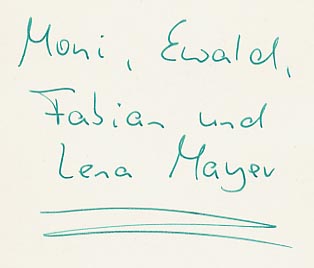 Moni, Ewald,
Fabian und
Lena Mayer